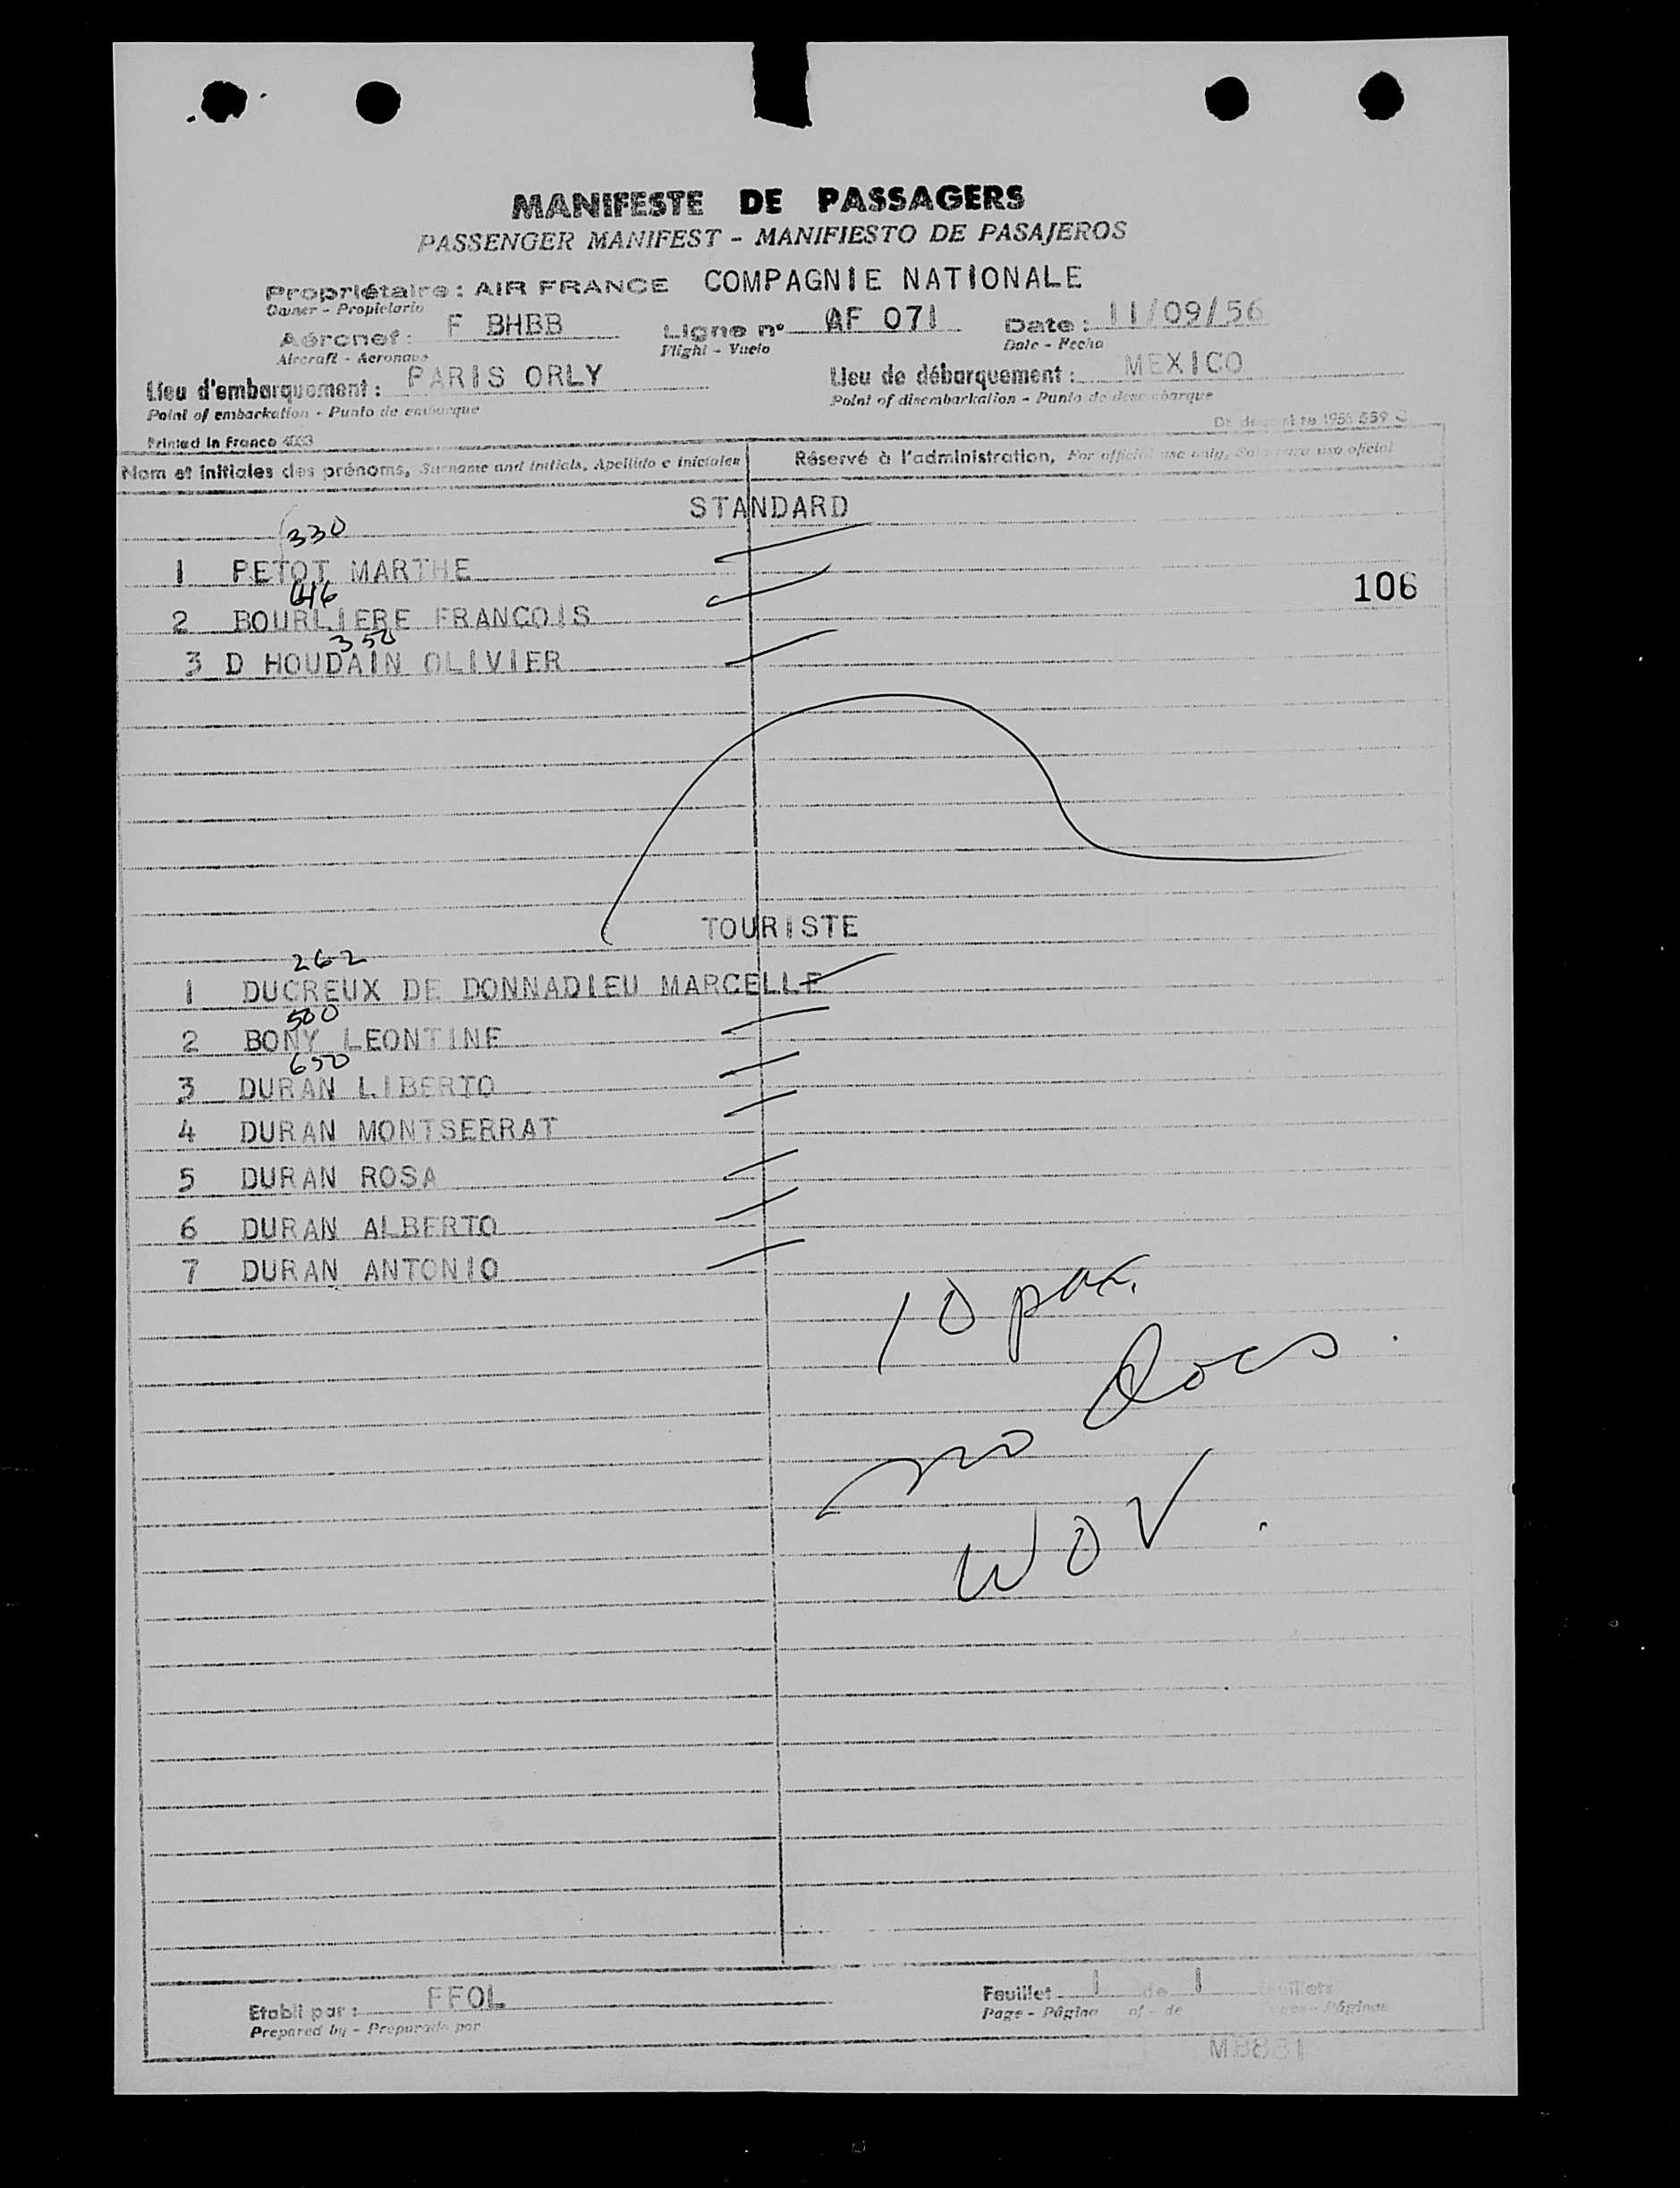 MANIFESTE DE PASSAGERS
PASSENGER MANIFEST - MANIFIESTO DE PASAJEROS
Propriétaire : AIR FRANCE COMPAGNIE NATIONALE
Owner - Propietario
Aéronef : F BHBB Ligne n° AF 071 Date : 11/09/56
Aircraft - Aeronave Flight - Vuelo Date - Fecha
Lieu d'embarquement : PARIS ORLY Lieu de débarquement : MEXICO
Point of embarkation - Punto de embarque Point of disembarkation - Punto de desembarque
Printed in France 4033 1955 559
Nom et initiales des prénoms, Surname and initials, Apellido e iniciales Réservé à l'administration, For official use only, Solo para uso oficial
STANDARD
330
1 PETOT MARTHE
616
106
2 BOURLIERE FRANCOIS
350
3 D HOUDAIN OLIVIER
TOURISTE
262
1 DUCREUX DE DONNADIEU MARCELLE
500
2 BONY LEONTINE
650
3 DURAN LIBERTO
4 DURAN MONTSERRAT
5 DURAN ROSA
6 DURAN ALBERTO
7 DURAN ANTONIO
10 pax.
no docs
WOV
Etabli par : FFOL Feuillet 1 de 1 feuillets
Prepared by - Preparado por Page - Página of - de Pages - Páginas